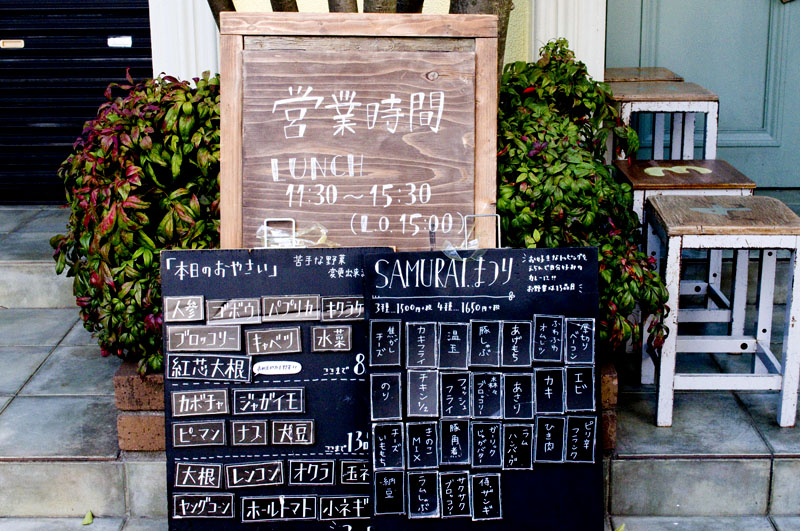 営業時間
LUNCH
11:30～15:30
(L.O.15:00)
「本日のおやさい」
苦手な野菜
変更出来
人参 ゴボウ パプリカ キクラゲ
ブロッコリー キャベツ 水菜
紅芯大根
ここまで 8
カボチャ ジャガイモ
ピーマン ナス 大豆
ここまで 13
大根 レンコン オクラ 玉ネ
ヤングコーン ホールトマト 小ネギ
SAMURAI.まつり
お好きなトッピングを
えらんで自分好みの
カレーに!!
お野菜は13品目
3種…1500円+税 4種…1650円+税
焦がしチーズ カキフライ 温玉 豚しゃぶ あげもち ふわふわオムレツ 厚切りベーコン
のり チキン フィッシュフライ ブロッコリー あさり カキ エビ
チーズいももち きのこMIX 豚角煮 ガーリックじゃがバタ ラムハンバグ ひき肉 ピリ辛フランク
納豆 ラムしゃぶ サクサクブロッコリー 侍ザンギ